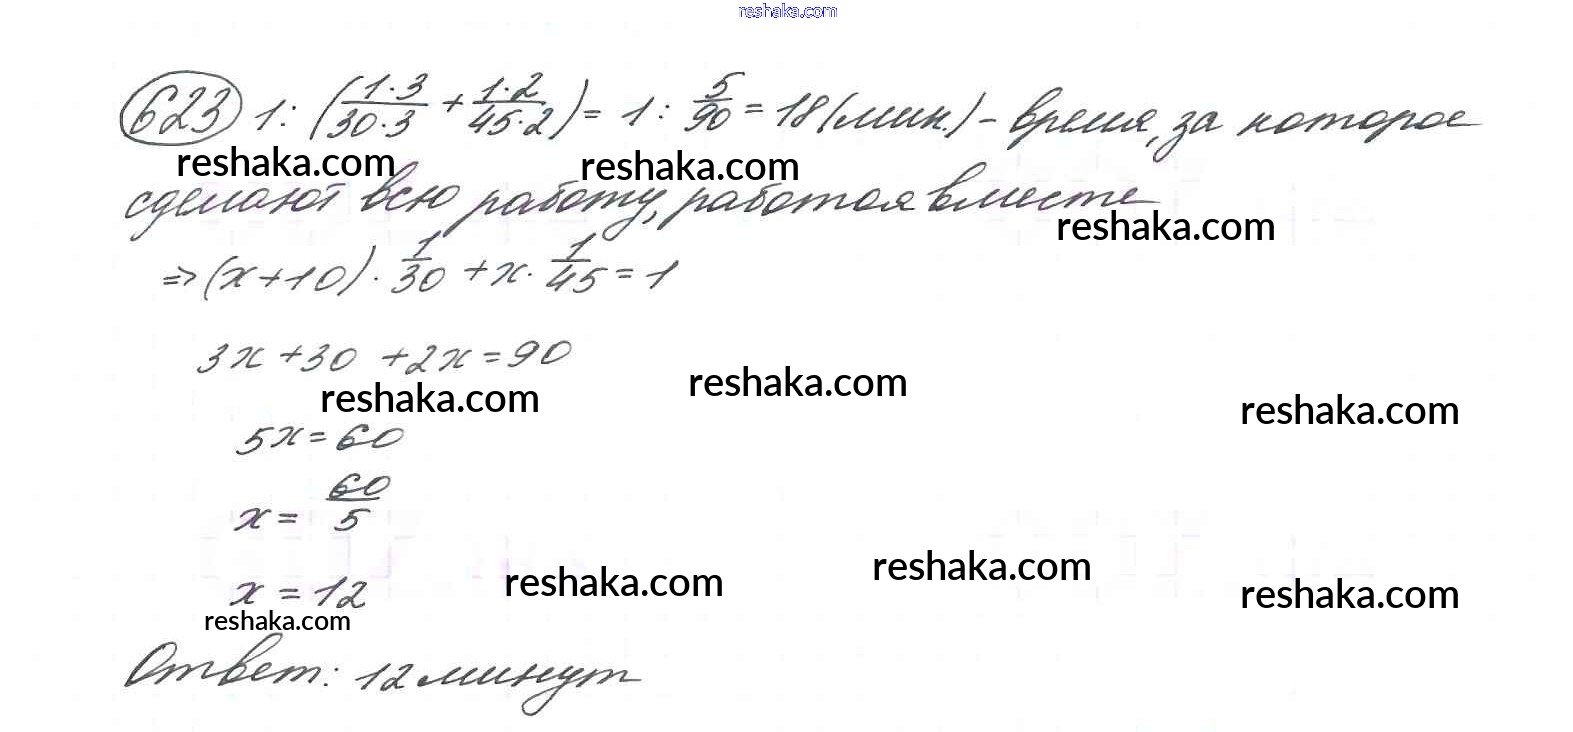 reshaka.com
623 1 : (1·3/30·3 + 1·2/45·2) = 1 : 5/90 = 18 (мин.) – время, за которое
reshaka.com reshaka.com
сделают всю работу, работая вместе
reshaka.com
⇒ (x+10) · 1/30 + x · 1/45 = 1
3x + 30 + 2x = 90
reshaka.com reshaka.com reshaka.com
5x = 60
x = 60/5
reshaka.com reshaka.com reshaka.com
x = 12
reshaka.com
Ответ: 12 минут